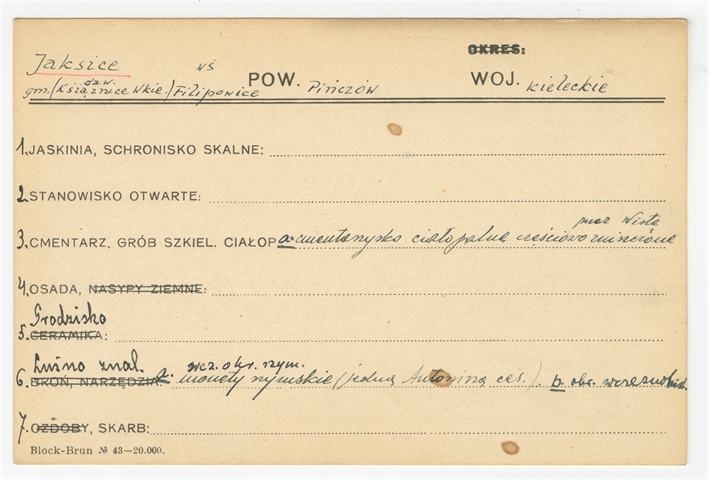 OKRES:
Jaksice wś POW. Pińczów WOJ. kieleckie
gm. (dzw. Książnice Wkie.) Filipowice
1. JASKINIA, SCHRONISKO SKALNE:
2. STANOWISKO OTWARTE:
przez Wisłę
3. CMENTARZ, GRÓB SZKIEL. CIAŁOP a. cmentarzysko ciałopalne częściowo zniszczone
4. OSADA, NASYPY ZIEMNE:
Grodzisko
5. CERAMIKA:
Luźno znal. wcz. okr. rzym.
6. BROŃ, NARZĘDZIA: a. monety rzymskie (jedna Antonina ces.). b. okr.
7. OZDOBY, SKARB:
Block-Brun № 43—20.000.